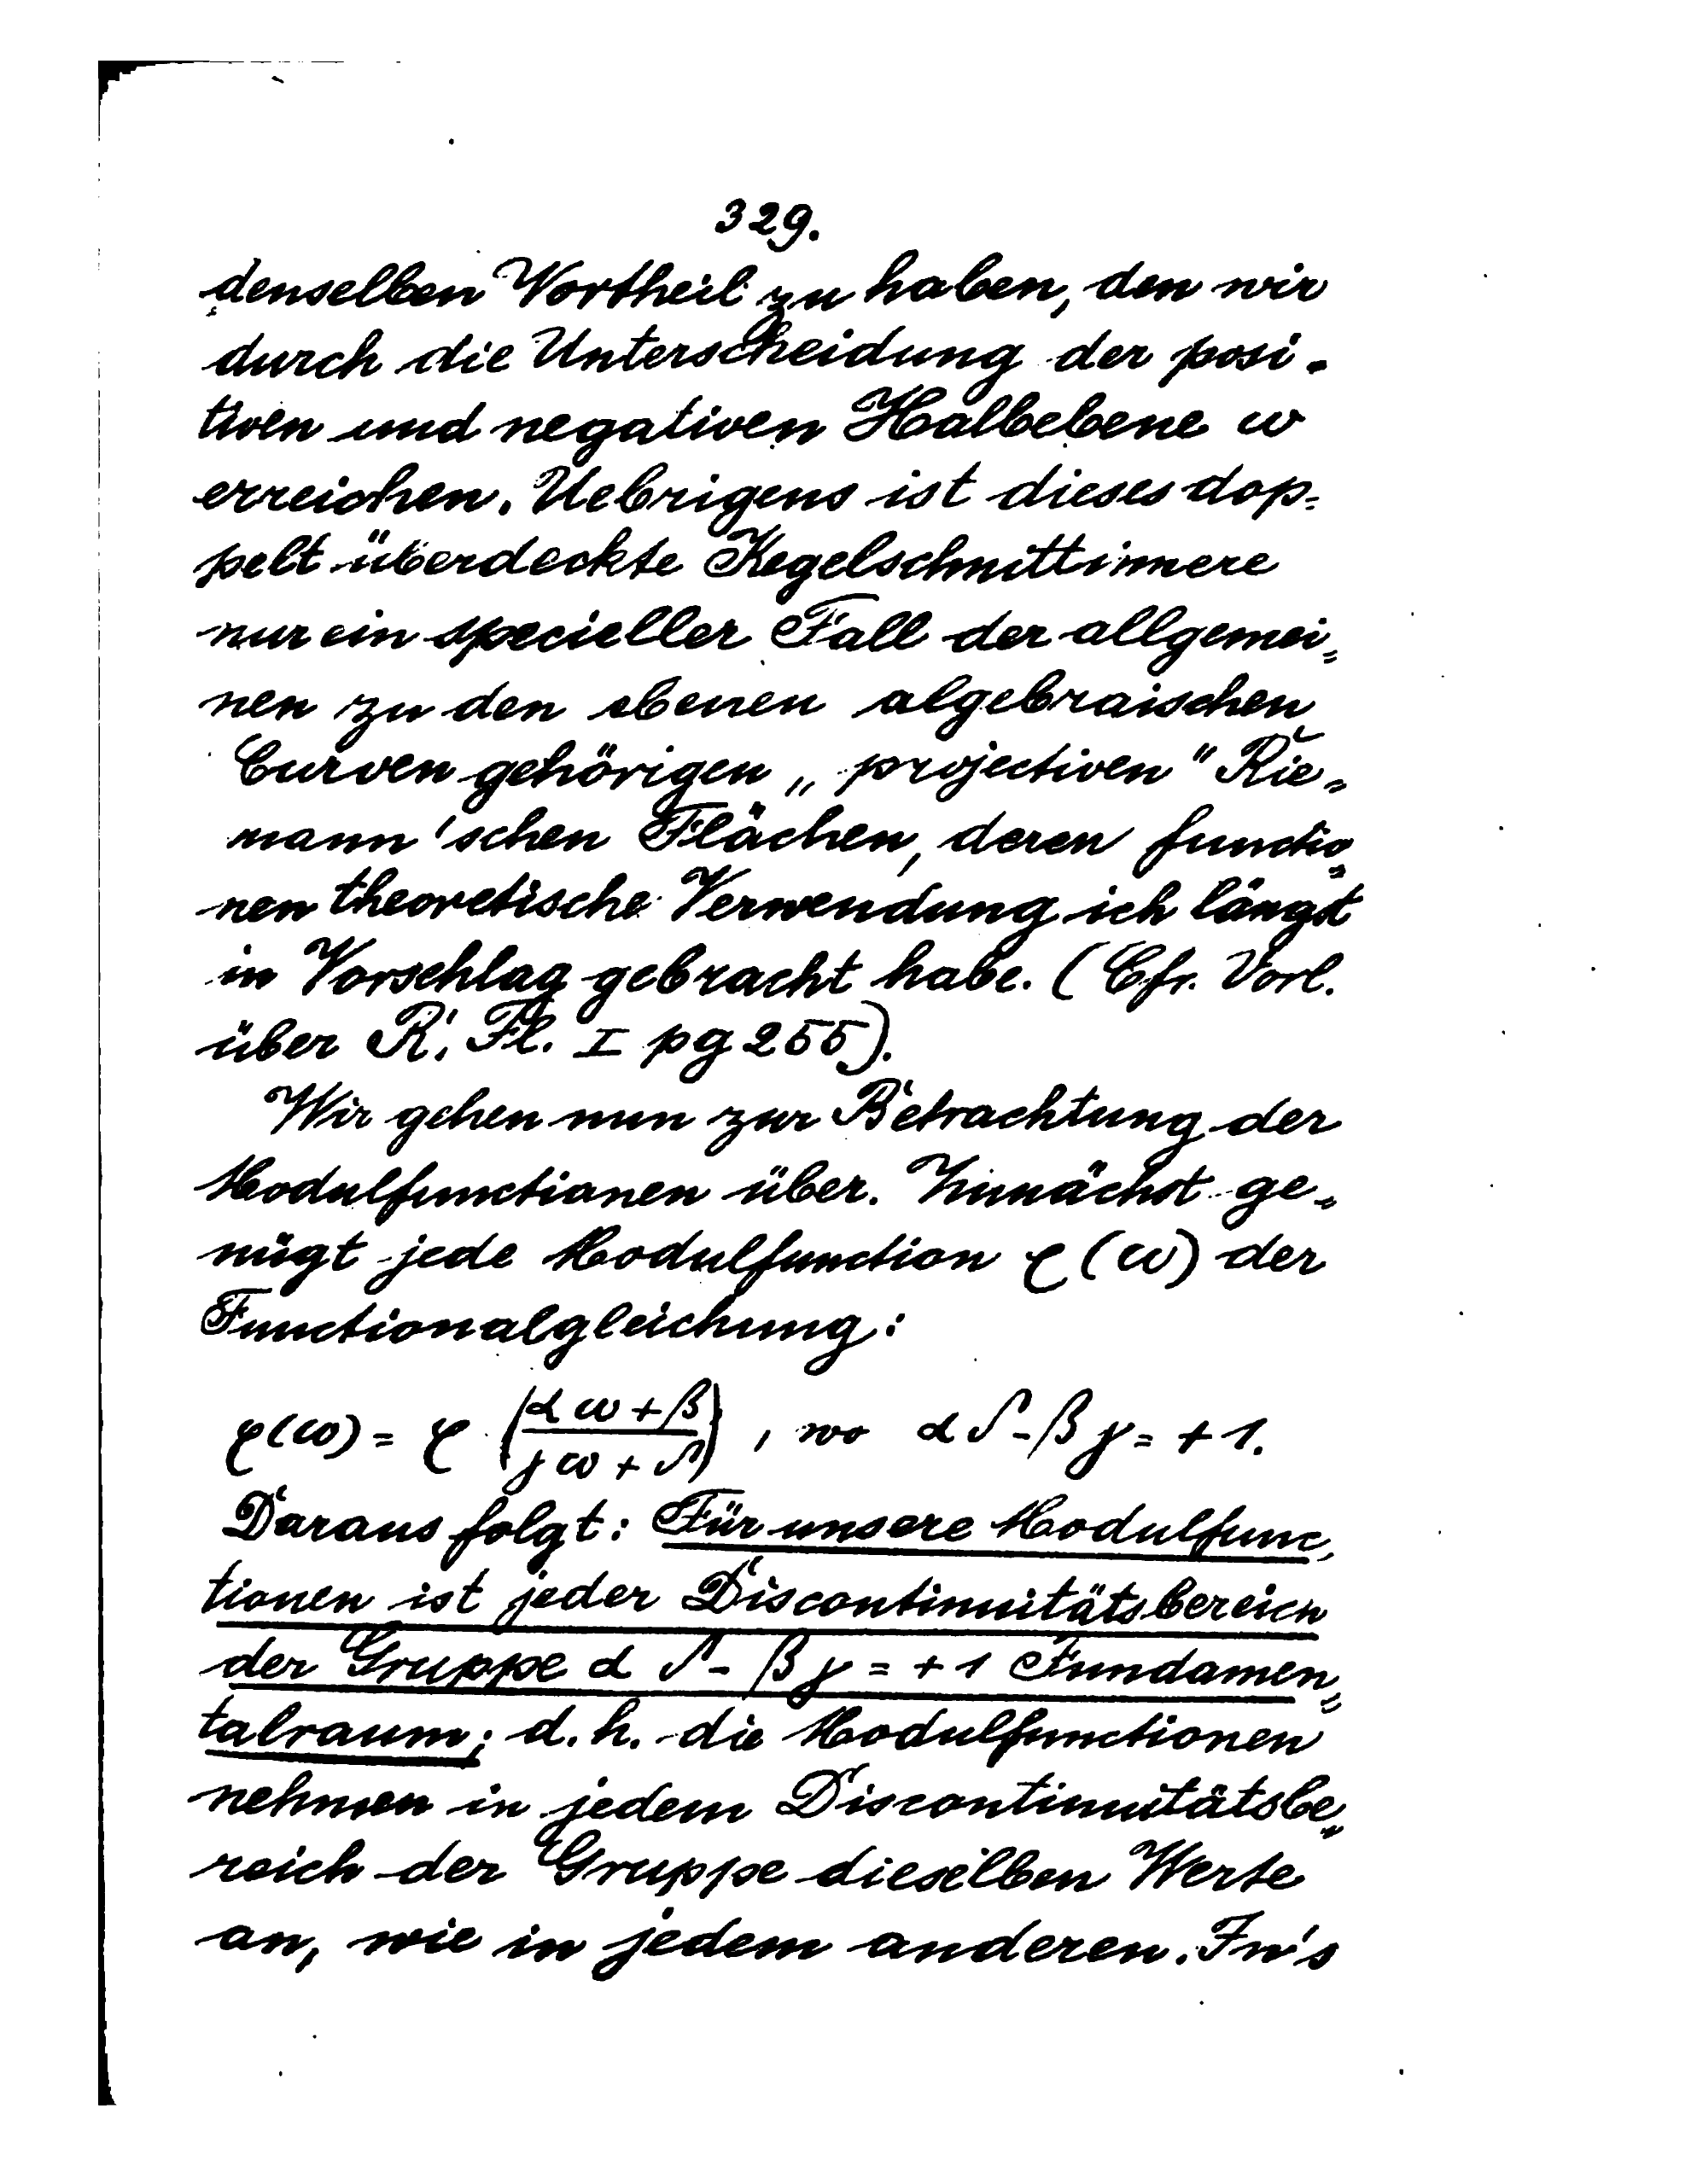 329.
denselben Vortheil zu haben, den wir
durch die Unterscheidung der posi-
tiven und negativen Halbebene ω
erreichen. Uebrigens ist dieses dop-
pelt überdeckte Kegelschnittinnere
nur ein specieller Fall der allgemei-
nen zu den ebenen algebraischen
Curven gehörigen „projectiven" Rie-
mann'schen Flächen, deren functio-
nen theoretische Verwendung ich längst
in Vorschlag gebracht habe. (Cfr. Vorl.
über R. Fl. I pg 255).
Wir gehen nun zur Betrachtung der
Modulfunctionen über. Zunächst ge-
nügt jede Modulfunction φ(ω) der
Functionalgleichung:
φ(ω) = φ((αω+β)/(γω+δ)), wo αδ-βγ=+1.
Daraus folgt: Für unsere Modulfunc-
tionen ist jeder Discontinuitätsbereich
der Gruppe αδ-βγ=+1 Fundamen-
talraum; d.h. die Modulfunctionen
nehmen in jedem Discontinuitätsbe-
reich der Gruppe dieselben Werte
an, wie in jedem anderen. In's